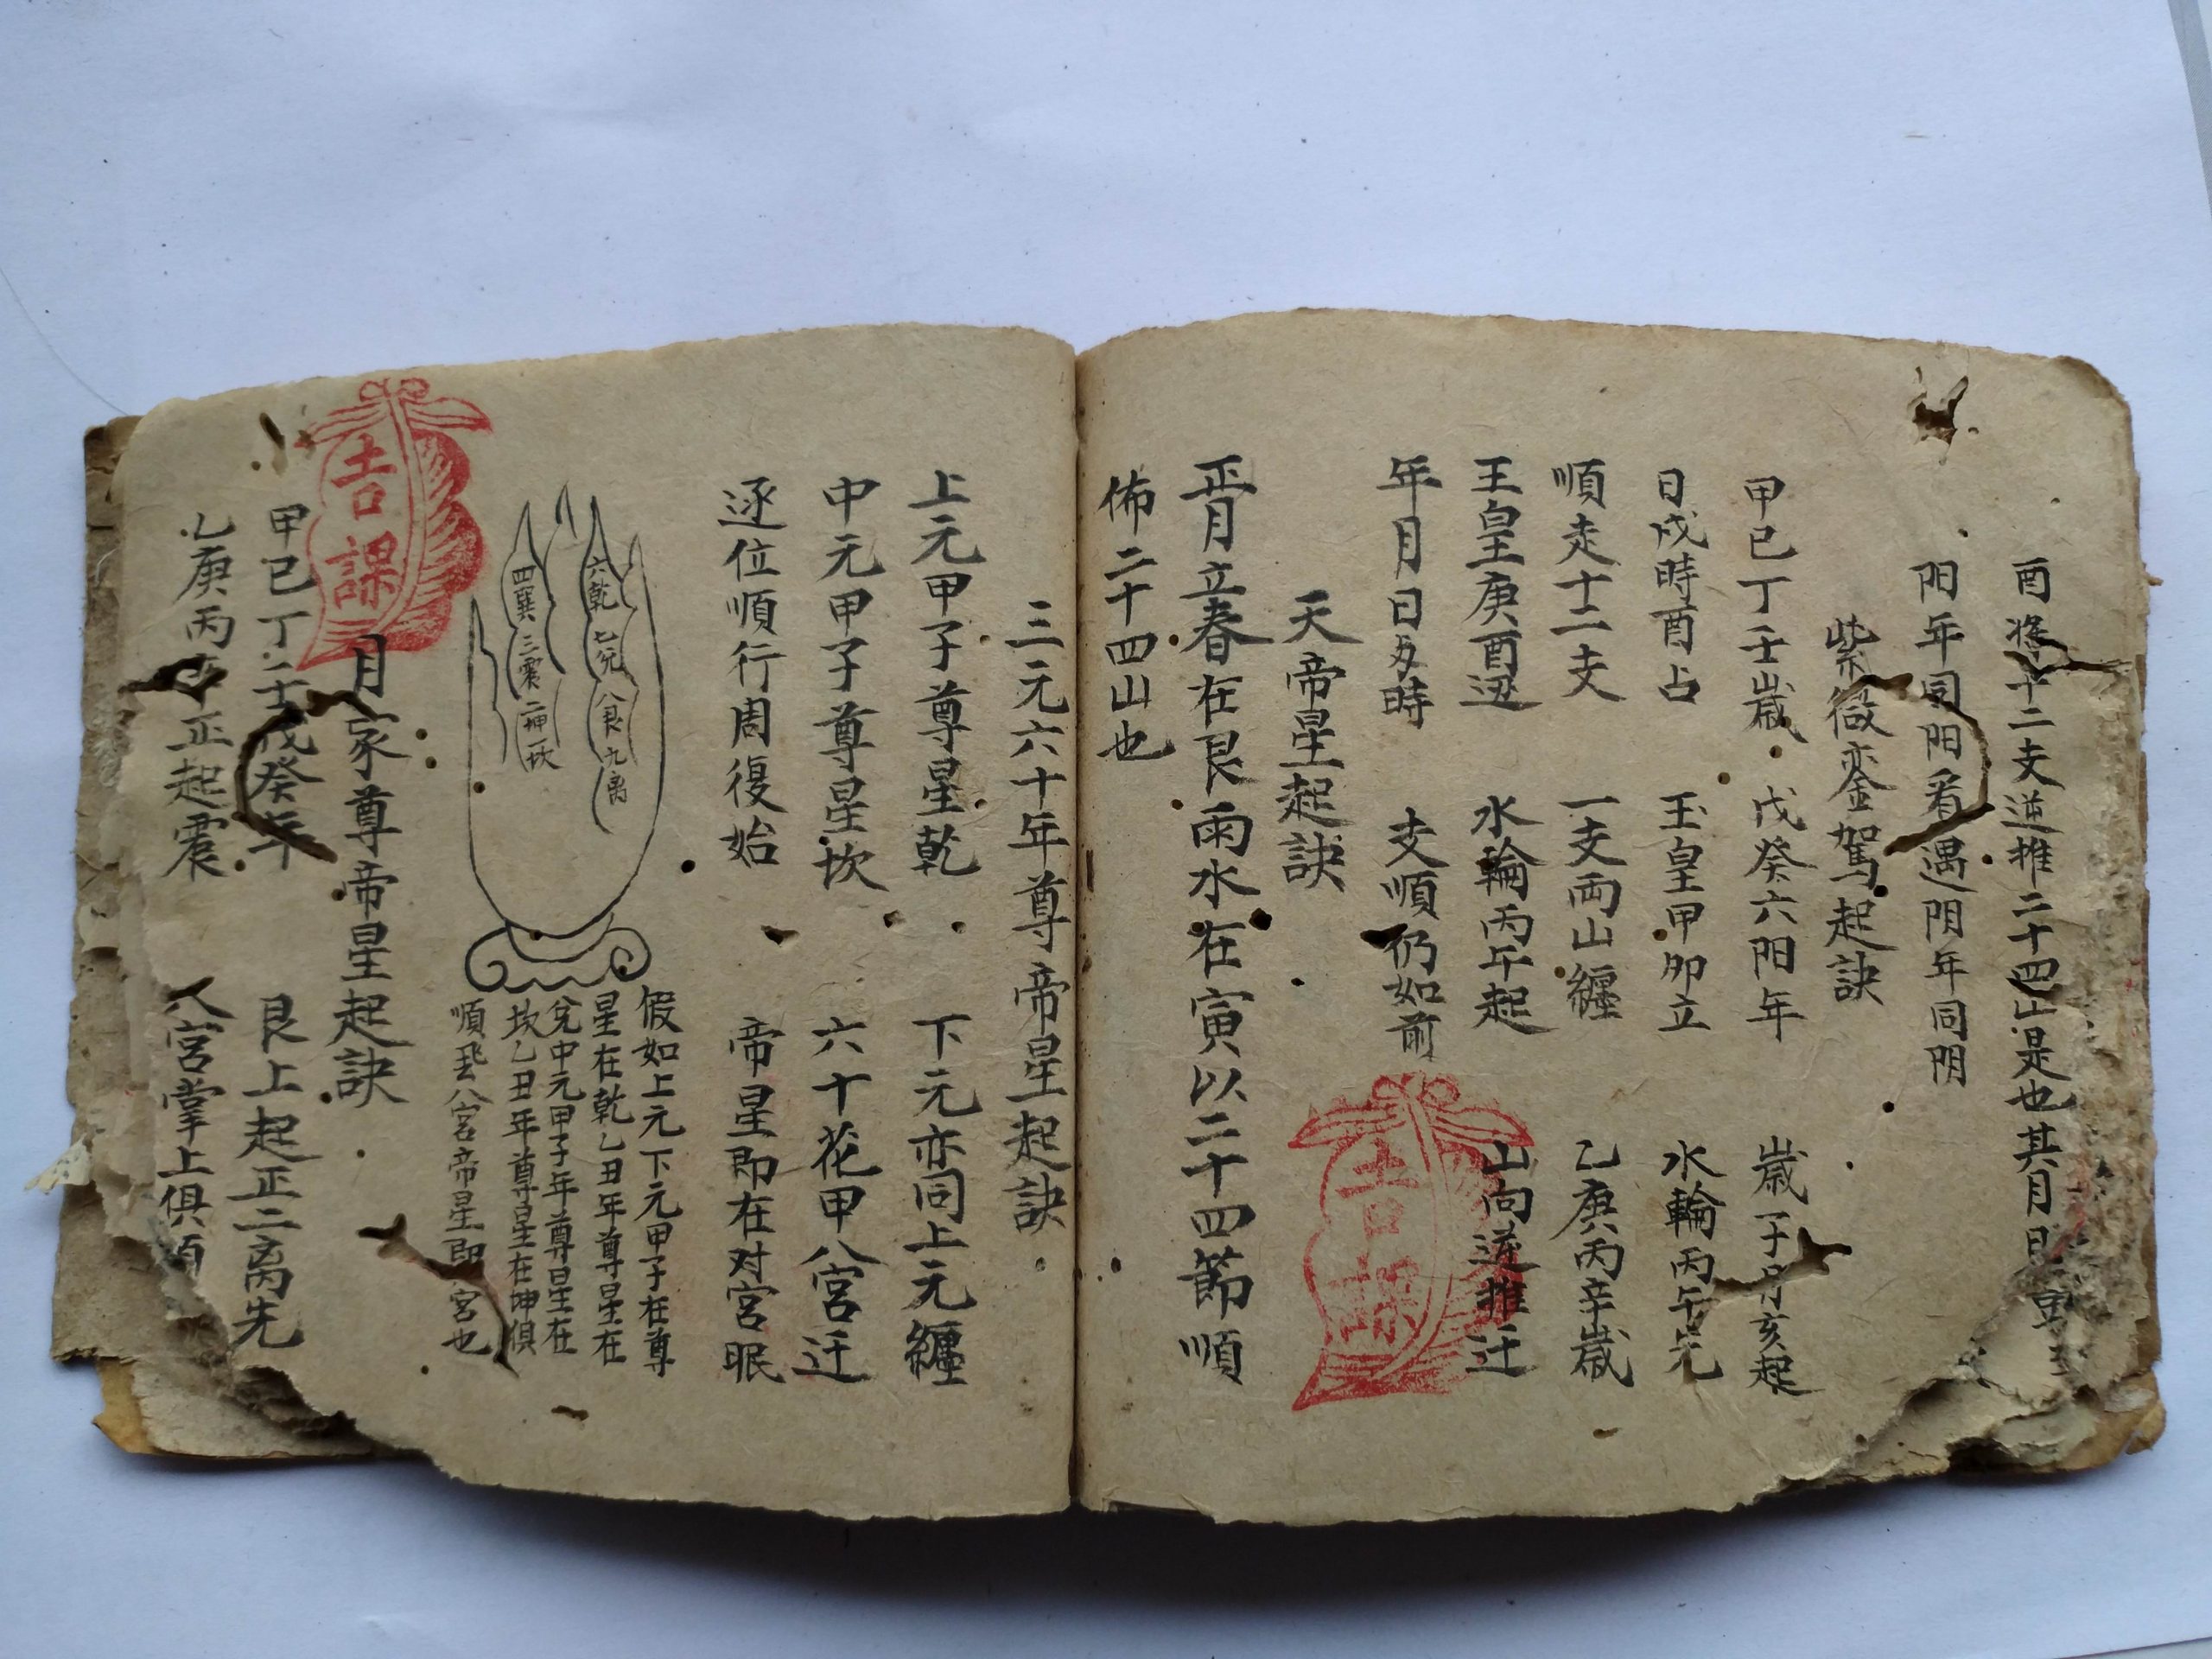 酉将十二支逆推二十四山是也其月日
阳年同阳看遇阴年同阴
紫微銮駕起訣
甲己丁壬歲 戊癸六阳年 歲子月亥起
日戌時酉占 玉皇甲卯立 水輪丙午先
順走十二支 一支両山纏 乙庚丙辛歲
玉皇庚酉逆 水輪丙午起 山向逆推迁
年月日与時 支順仍如前
吉課
天帝星起訣
正月立春在艮雨水在寅以二十四節順
佈二十四山也
三元六十年尊帝星起訣
上元甲子尊星乾 下元亦同上元纏
中元甲子尊星坎 六十花甲八宮迁
逐位順行周復始 帝星即在对宮眠
六乾 七兑 八艮 九离
四巽 三震 二坤 一坎
假如上元下元甲子在尊
星在乾乙丑年尊星在
兑中元甲子年尊星在
坎乙丑年尊星在坤俱
順飛八宮帝星即 宮也
吉課
月家尊帝星起訣
甲己丁壬戊癸年 艮上起正二离先
乙庚丙辛正起震 八宮掌上俱